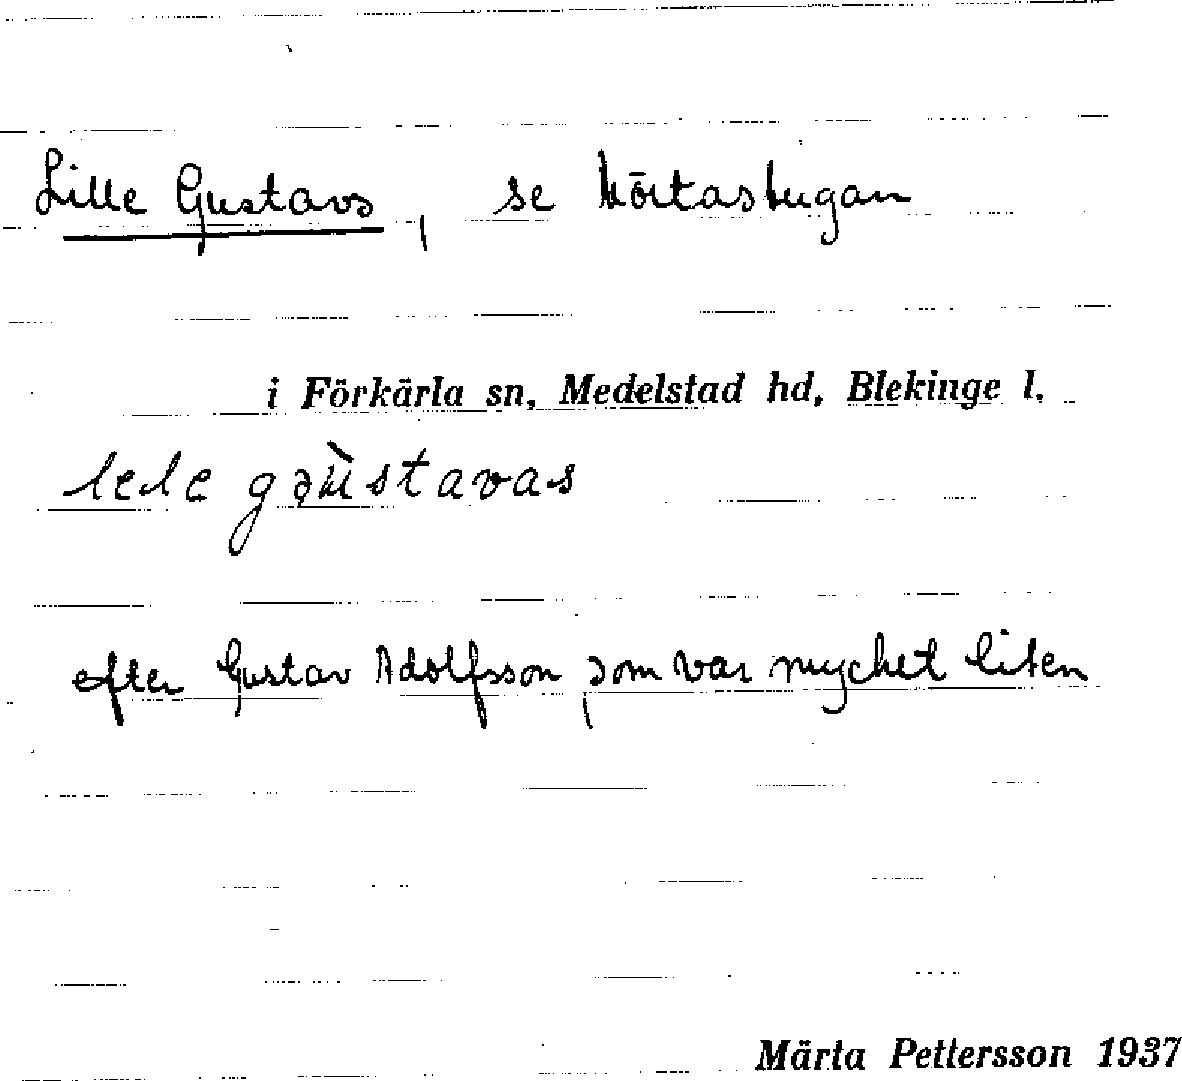 Lille Gustavs, se Mörtastugan
i Förkärla sn, Medelstad hd, Blekinge l.
lele gəùstavas
efter Gustav Adolfsson som var mycket liten
Märta Pettersson 1937